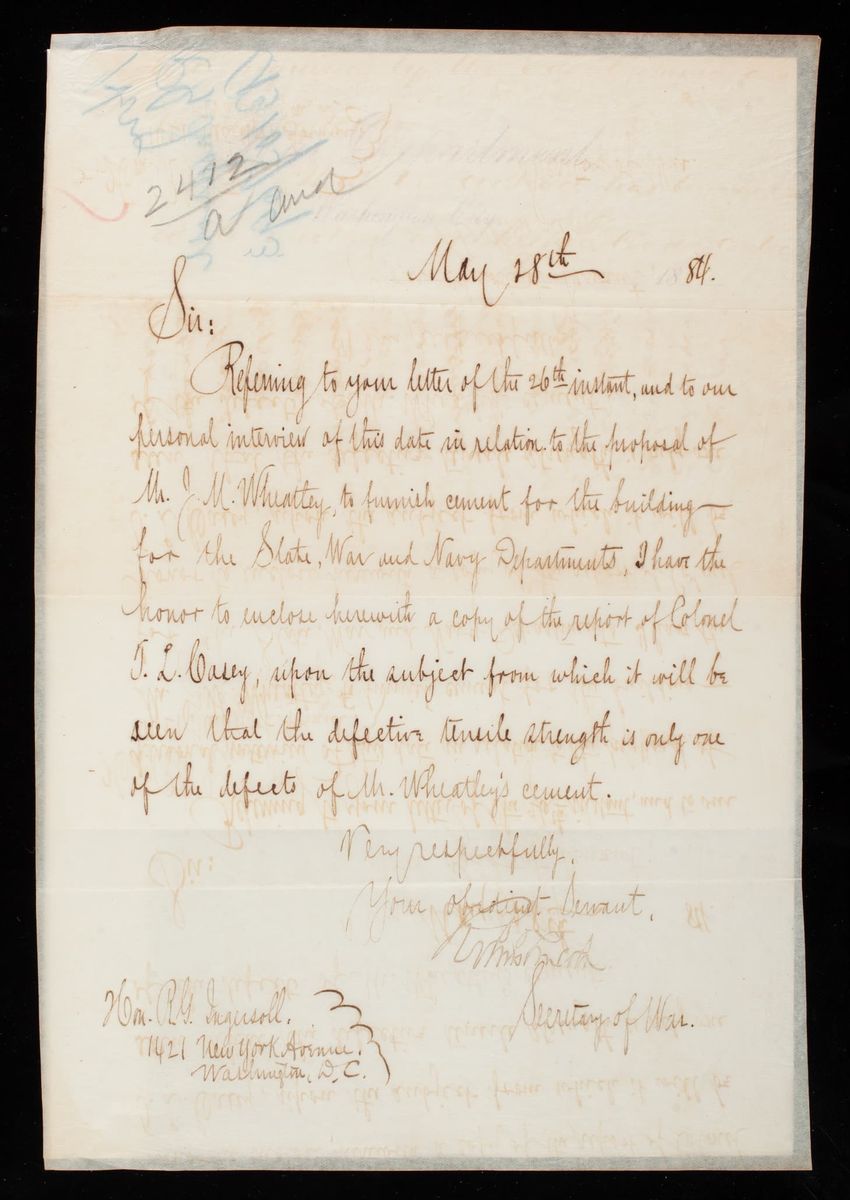 2412
a and
May 28th 1884.
Sir:
Referring to your letter of the 26th instant, and to our
personal interview of this date in relation to the proposal of
Mr. J. M. Wheatley, to furnish cement for the building
for the State, War and Navy Departments, I have the
honor to enclose herewith a copy of the report of Colonel
T. L. Casey, upon the subject from which it will be
seen that the defective tensile strength is only one
of the defects of Mr. Wheatley's cement.
Very respectfully,
Your obedient Servant,
Secretary of War.
Hon. R. G. Ingersoll,
1421 New York Avenue,
Washington, D. C.